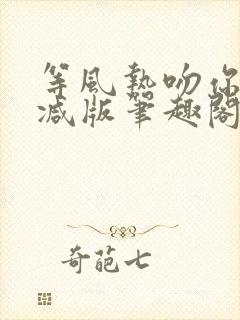 等風熱吻你
減版筆趣閣
奇葩七